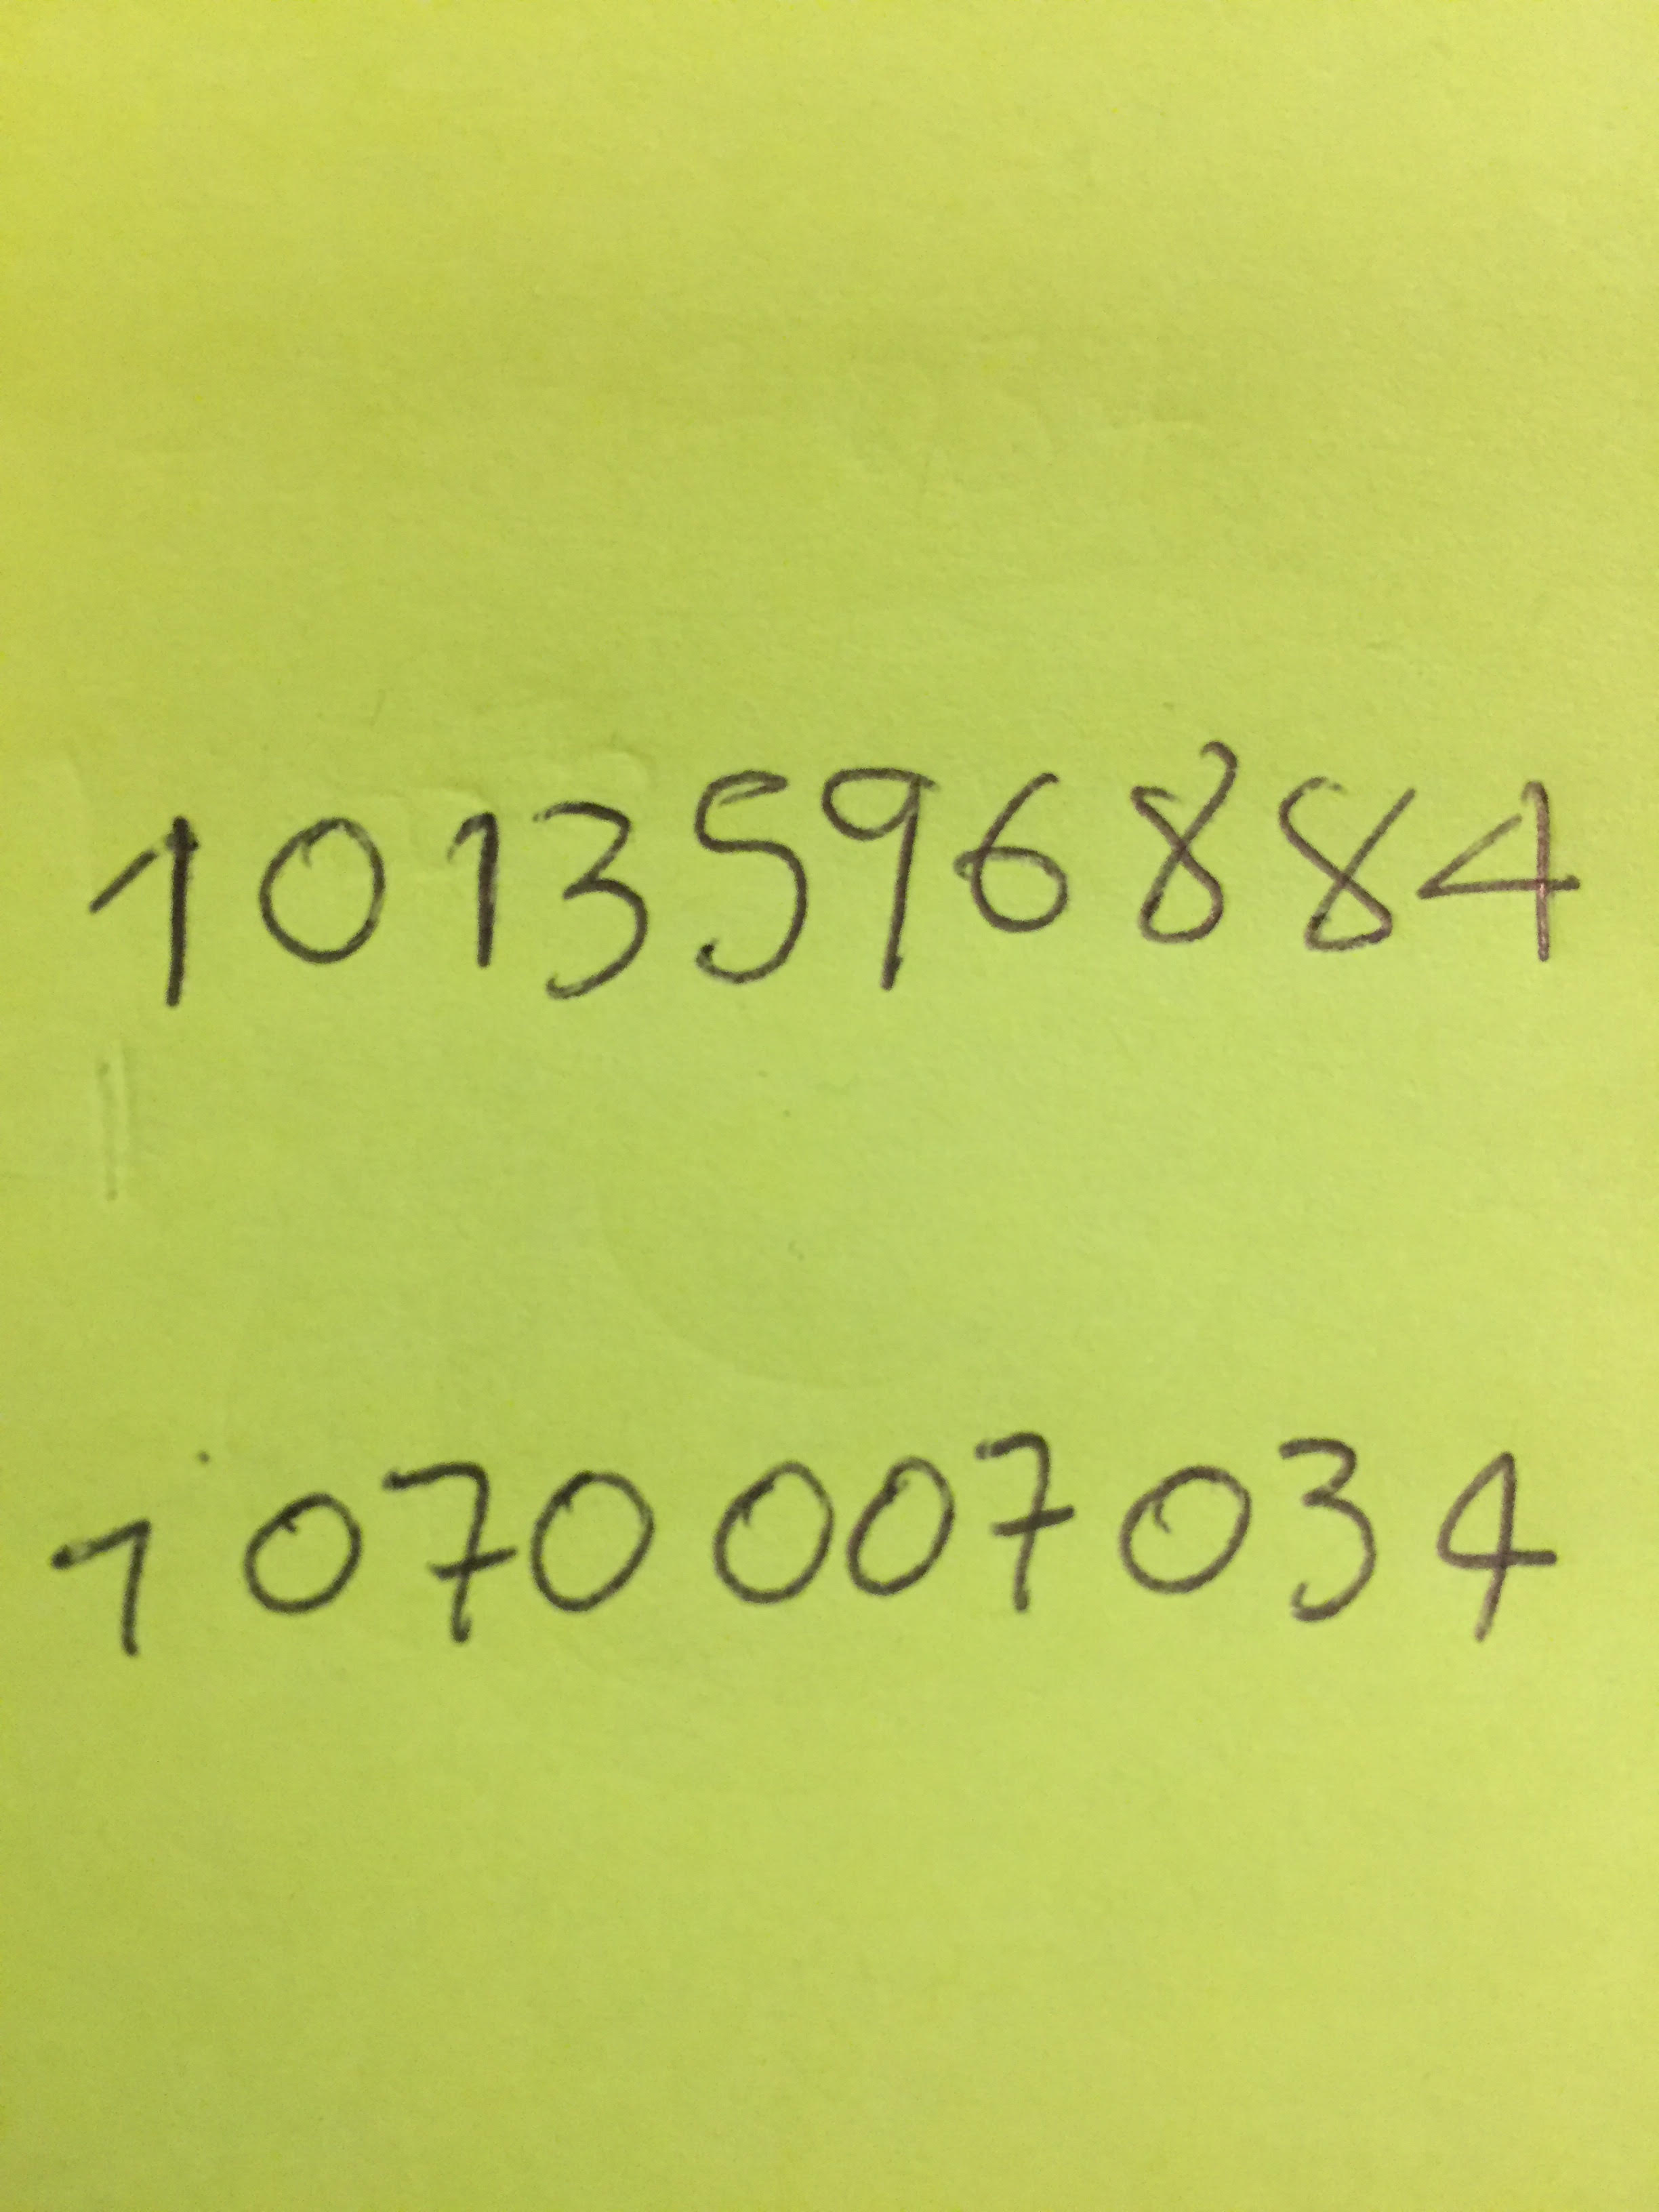 1013596884
1070007034